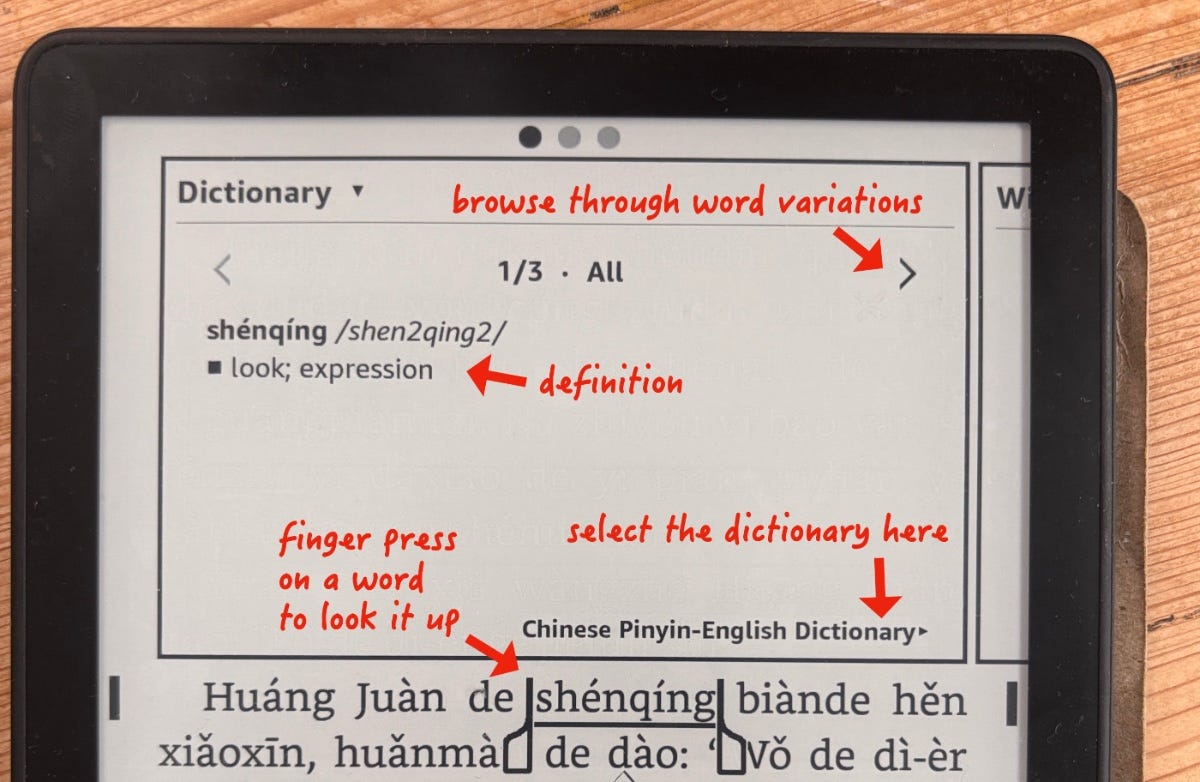 Dictionary ▼
Wi
browse through word variations
1/3 · All
shénqíng /shen2qing2/
■ look; expression
definition
finger press
on a word
to look it up
select the dictionary here
Chinese Pinyin-English Dictionary▸
Huáng Juàn de shénqíng biànde hěn
xiǎoxīn, huǎnmà de dào: ‘Vǒ de dì-èr